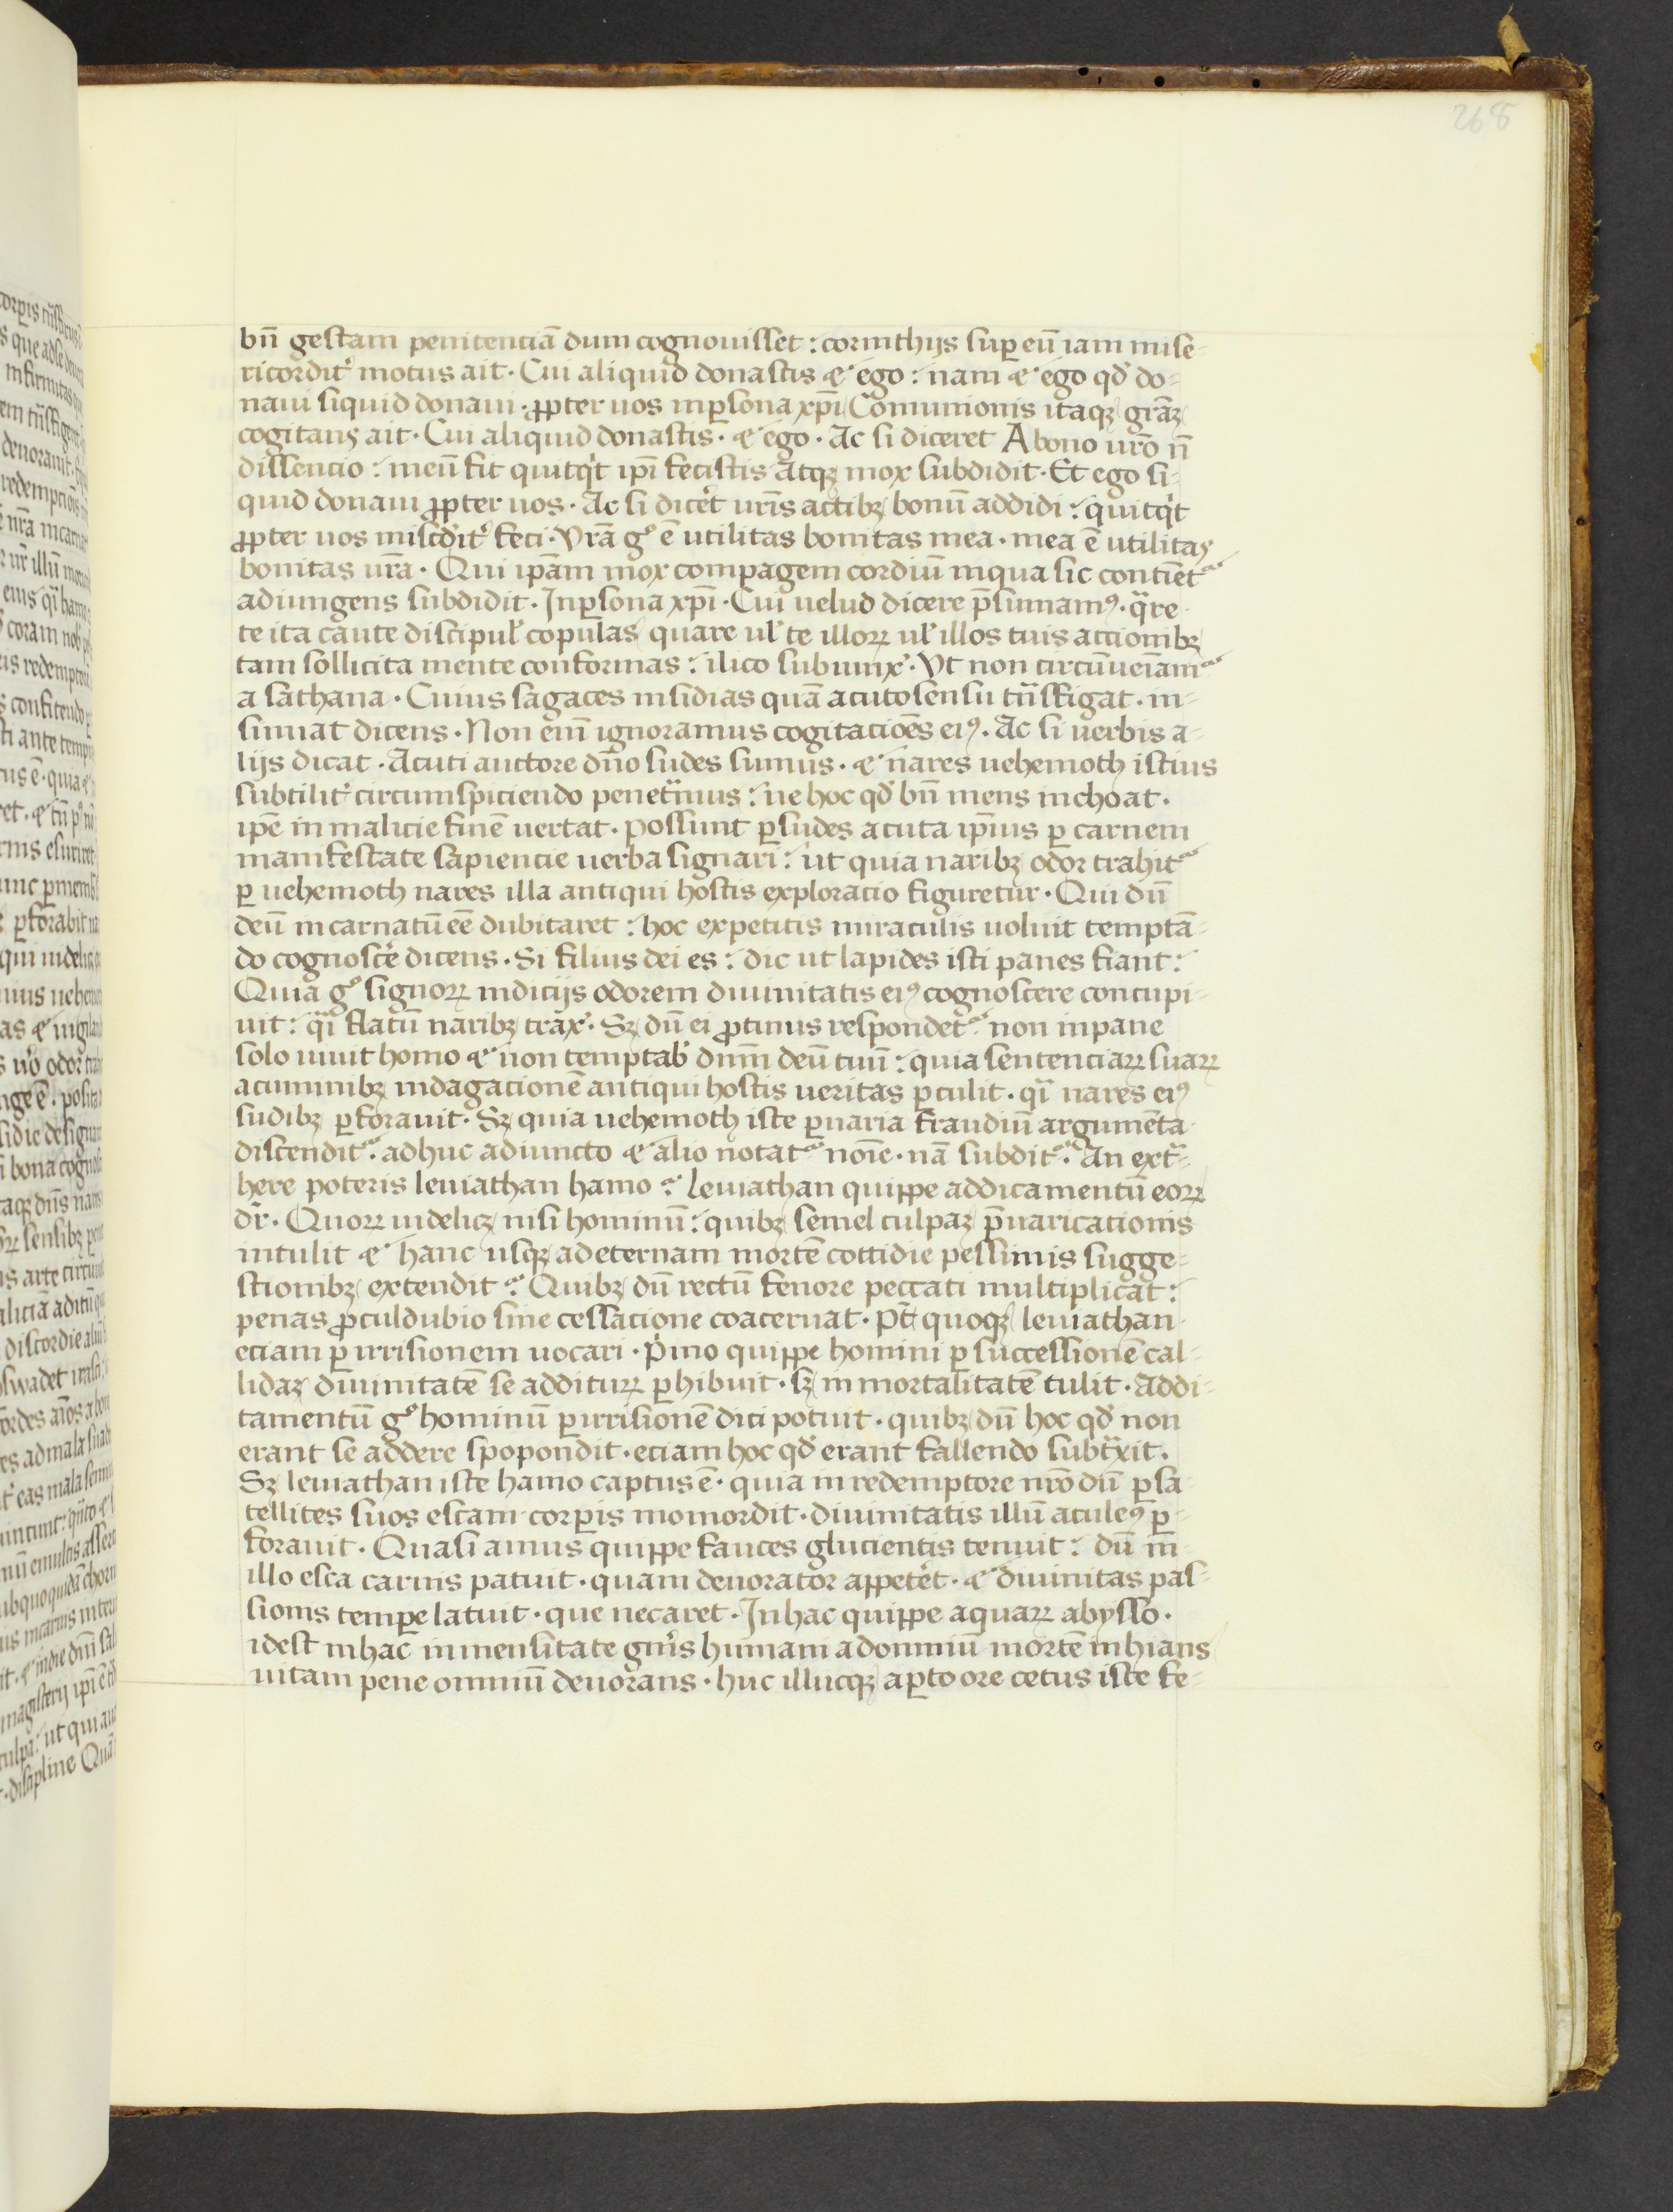 268
bn̄ gestam penitenciā dum cognouisset : corinthijs sup̱ eū iam mise-
ricordit᷑ motus ait · Cui aliquid donastis ⁊ ego : nam ⁊ ego qd̕ do-
naui siquid donaui · ꝓpter uos inp̱sona xp̄i Cōmunionis itaqꝫ grāꝫ
cogitans ait · Cui aliquid donastis · ⁊ ego · Ac si diceret A bono ur̄o n̄
dissencio : meū fit quitqͥt ip̄i fecistis Atqꝫ mox subdidit · Et ego si-
quid donaui ꝓpter uos · Ac si dicet᷑ ur̄is actibꝫ bonū addidi : quitqͥt
ꝓpter uos misc̄dit᷑ feci · Vrā gͦ ē utilitas bonitas mea · mea ē utilitas
bonitas ur̄a · Qui ip̄am mox compagem cordiū inqua sic contīet᷑
adiungens subdidit · Inp̱sona xp̄i · Cui uelud dicere p̄sumamꝰ · qͣre
te ita caute discipul̕ copulas quare ul̕ te illoꝝ ul̕ illos tuis actionibꝫ
tam sollicita mente conformas : ilico subiunx᷑ · Vt non circūueīam᷑
a sathana · Cuius sagaces insidias quā acuto sensu tͣnsfigat · in-
sinuat dicens · Non eīn ignoramus cogitacioēs eiꝰ · Ac si uerbis a-
lijs dicat · Acuti auctore dn̄o sudes sumus · ⁊ nares uehemoth istius
subtilit᷑ circumspiciendo penetͣmus : ne hoc qd̕ bn̄ mens inchoat ·
ip̄e in malicie finē uertat · Possunt p̱ sudes acuta ip̄ius p̱ carnem
manifestate sapiencie uerba signari : ut quia naribꝫ odor trahit᷑
p̱ uehemoth nares illa antiqui hostis exploracio figuretur · Qui dū
deū incarnatū eē dubitaret : hoc expetitis miraculis uoluit temptā-
do cognosce᷑ dicens · Si filius dei es : dic ut lapides isti panes fiant :
Quia gͦ signoꝝ indicijs odorem diuinitatis eiꝰ cognoscere concupi-
uit : qͣi flatū naribꝫ trax᷑ · Sꝫ dū ei ꝓtinus respondet᷑ non in pane
solo uiuit homo ⁊ non temptab̕ dnm̄ deū tuū : quia sentenciaꝝ suaꝝ
acuminibꝫ indagacionē antiqui hostis ueritas p̱culit · qͣi nares eiꝰ
sudibꝫ p̱forauit · Sꝫ quia uehemoth iste p̱ uaria fraudiū argumēta
discendit᷑ : adhuc adiuncto ⁊ alio notat᷑ noīe · nā subdit᷑ : An extͣ-
here poteris leuiathan hamo ? Leuiathan quippe addicamentū eoꝝ
dr̄ · Quoꝝ uidelicꝫ nisi hominū : quibꝫ semel culpaꝫ p̄uaricationis
intulit ⁊ hanc usqꝫ ad eternam mortē cottidie pessimis sugge-
stionibꝫ extendit ? Quibꝫ dū rectū fenore peccati multiplicat :
penas ꝓculdubio sine cessacione coaceruat · Pt̄ quoqꝫ leuiathan
eciam p̱ irrisionem uocari · Pͥmo quippe homini p̱ successionē cal-
lidaꝫ diuinitatē se addituꝝ p̱hibuit · sꝫ inmortalitatē tulit · Addi-
tamentū gͦ hominū p̱ irrisionē dici potuit · quibꝫ dū hoc qd̕ non
erant se addere spopondit · eciam hoc qd̕ erant fallendo subtͣxit ·
Sꝫ leuiathan iste hamo captus ē · quia in redemptore nr̄o dū p̱ sa-
tellites suos escam corp̱is momordit · diuinitatis illū aculeꝰ p̱-
forauit · Quasi amus quippe fauces glucientis tenuit : dū in
illo esca carnis patuit · quam deuorator appetet᷑ · ⁊ diuinitas pas-
sionis temp̱e latuit · que necaret · In hac quippe aquaꝝ abysso ·
idest in hac inmensitate gn̄is humani ad omniū mortē inhians
uitam pene omniū deuorans · huc illucqꝫ ap̱to ore cetus iste fe-